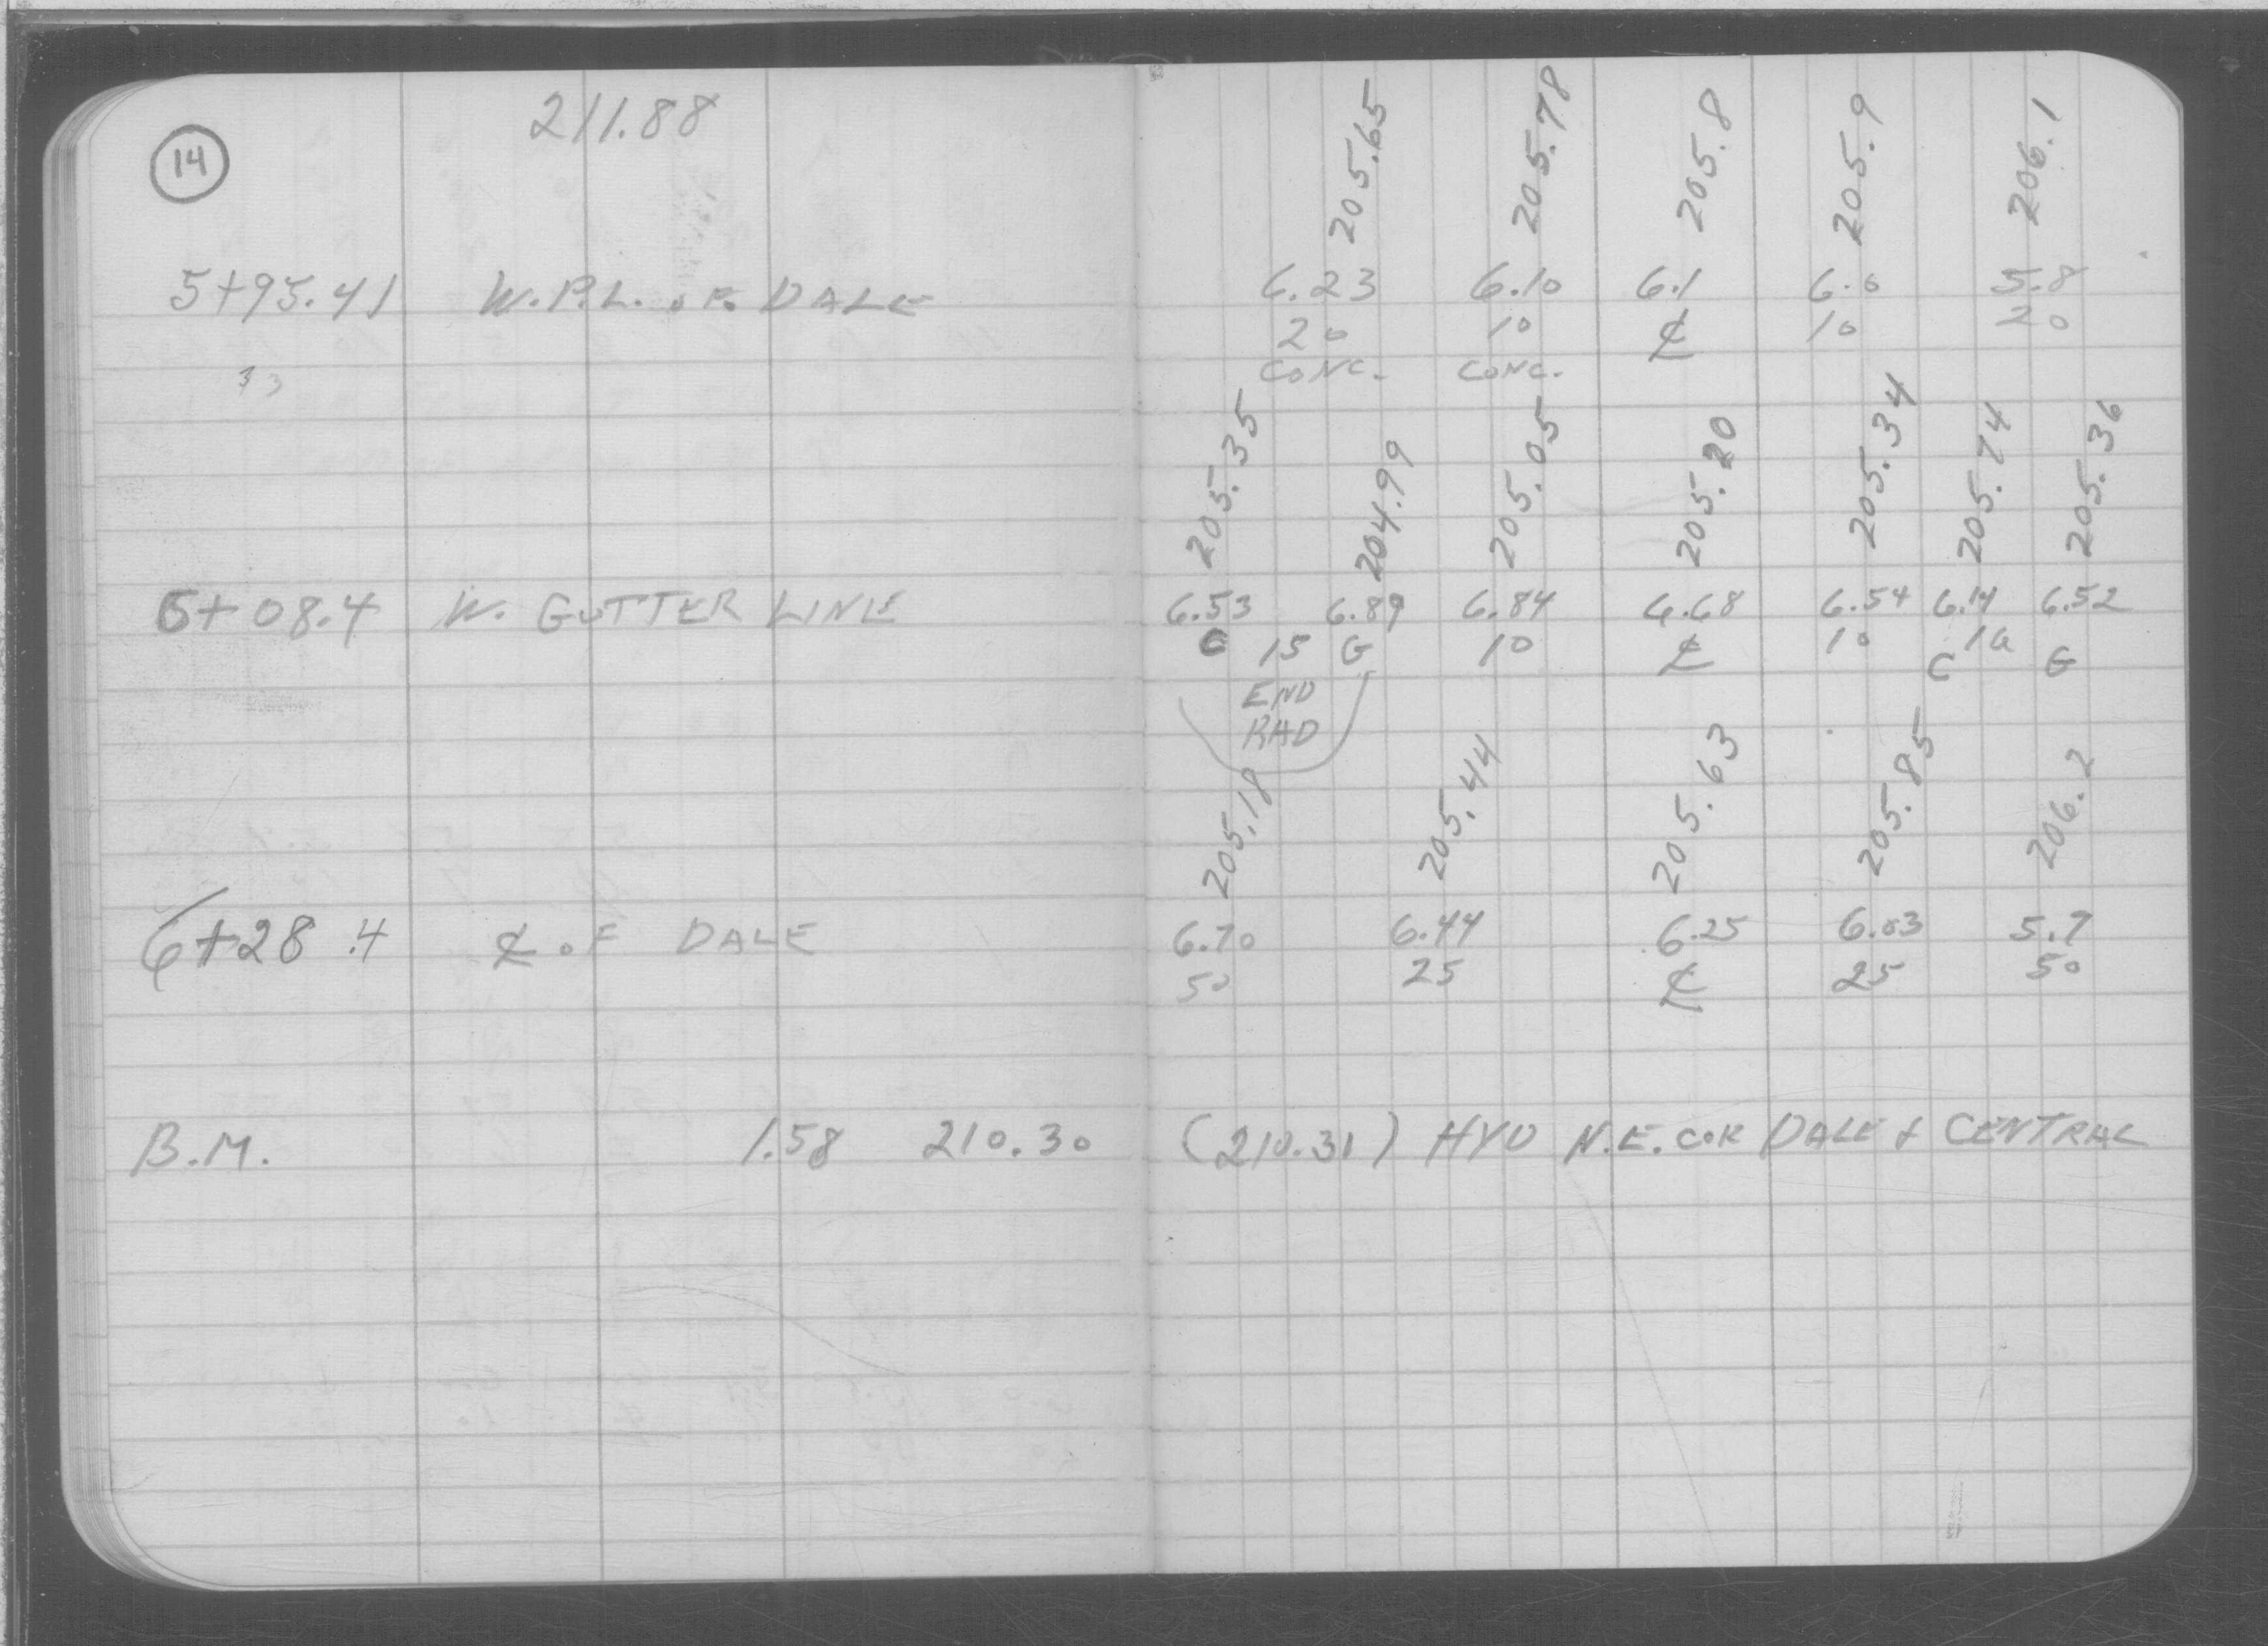 14
211.88
205.65 205.78 205.8 205.9 206.1
5+95.41 W.P.L. OF DALE 6.23 6.10 6.1 6.0 5.8
20 10 ℄ 10 20
CONC. CONC.
33
205.35 204.99 205.05 205.20 205.34 205.74 205.36
6+08.4 W. GUTTER LINE 6.53 6.89 6.84 6.68 6.54 6.14 6.52
C 15 G 10 ℄ 10 C 16 G
END
RAD
205.18 205.44 205.63 205.85 206.2
6+28.4 ℄ OF DALE 6.70 6.44 6.25 6.03 5.7
50 25 ℄ 25 50
B.M. 1.58 210.30 (210.31) HYD N.E. COR DALE & CENTRAL